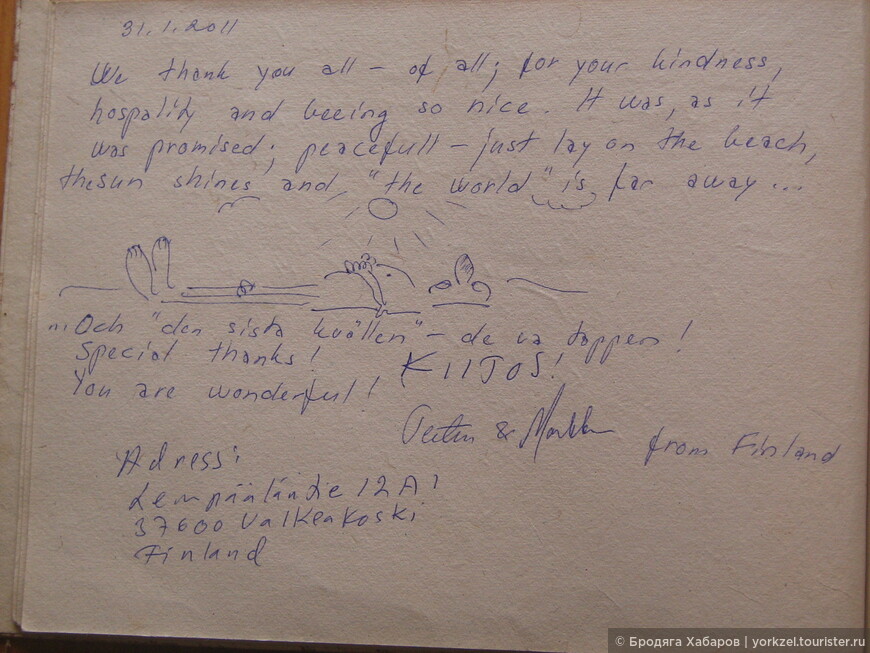 31.1.2011
We thank you all – of all; for your kindness,
hospality and beeing so nice. It was, as it
was promised; peacefull – just lay on the beach,
thesun shines and "the world" is far away...
... Och "den sista kvällen" – de va toppen!
Special thanks! KIITOS!
You are wonderful!
& from Finland
Adress:
Lempääläntie 12 A 1
37600 Valkeakoski
Finland
© Бродяга Хабаров | yorkzel.tourister.ru